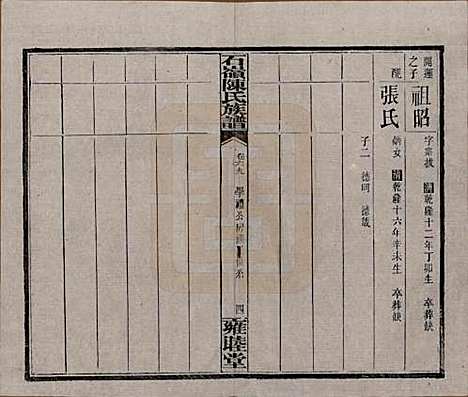 開運之子
祖昭
字紫拔 清乾隆十二年丁卯生 卒葬缺
配
張氏
娘女 清乾隆十六年辛未生 卒葬缺
子二 德明 德誠
石嶺陳氏族譜
卷六九
學禮公房
四
雍睦堂